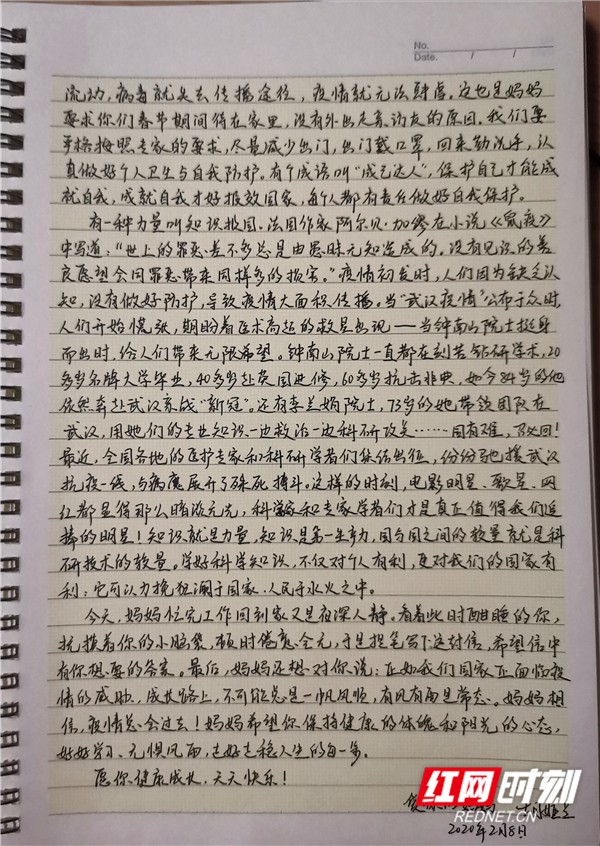 No.
Date.      /      /
流动，病毒就失去传播途径，疫情就无法肆虐。这也是妈妈
要求你们春节期间待在家里，没有外出走亲访友的原因。我们要
严格按照专家的要求，尽量减少出门，出门戴口罩，回来勤洗手，认
真做好个人卫生与自我防护。有个成语叫“成己达人”，保护自己才能成
就自我，成就自我才好报效国家，每个人都有责任做好自我保护。
有一种力量叫知识报国。法国作家阿尔贝·加缪在小说《鼠疫》
中写道：“世上的罪恶差不多总是由愚昧无知造成的。没有见识的善
良愿望会同罪恶带来同样多的损害。”疫情初发时，人们因为缺乏认
知，没有做好防护，导致疫情大面积传播。当“武汉疫情”公布于众时，
人们开始慌张，期盼着医术高超的救星出现——当钟南山院士挺身
而出时，给人们带来无限希望。钟南山院士一直都在刻苦钻研学术，20
多岁名牌大学毕业，40多岁赴英国进修，60多岁抗击非典，如今84岁的他
依然奔赴武汉奋战“新冠”。还有李兰娟院士，73岁的她带领团队在
武汉，用她们的专业知识一边救治一边科研攻关……国有难，召必回！
最近，全国各地的医护专家和科研学者们集结出征，纷纷驰援武汉
抗疫一线，与病魔展开了殊死搏斗。这样的时刻，电影明星、歌星、网
红都显得那么暗淡无光，科学家和专家学者们才是真正值得我们追
捧的明星！知识就是力量，知识是第一生产力，国与国之间的较量就是科
研技术的较量。学好科学知识，不仅对个人有利，更对我们的国家有
利；它可以力挽狂澜于国家、人民于水火之中。
今天，妈妈忙完工作回到家又是夜深人静。看着此时酣睡的你，
抚摸着你的小脑袋，顿时倦意全无，于是提笔写下这封信，希望信中
有你想要的答案。最后，妈妈还想对你说：正如我们国家正面临疫
情的威胁，成长路上，不可能总是一帆风顺，有风有雨是常态。妈妈相
信，疫情总会过去！妈妈希望你保持健康的体魄和阳光的心态，
好好学习、无惧风雨，走好走稳人生的每一步。
愿你健康成长、天天快乐！
2020年2月8日
红网时刻
REDNET.CN